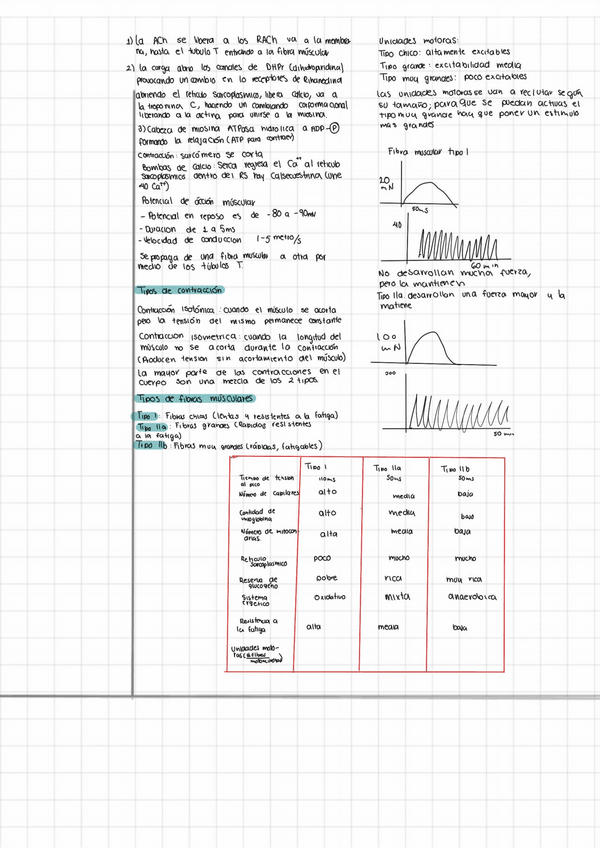 1) La ACh se libera a los RACh va a la membra-
na, hasta el tubulo T entrando a la fibra múscular
2) la carga abre los canales de DHPr (dihidropiridina)
provocando un cambio en lo receptores de Rihanedina
abriendo el retículo Sarcoplásmico, libera calcio, va a
la troponina C, haciendo un cambiando conformacional
liberando a la actina para unirse a la miosina.
3) Cabeza de miosina ATPasa hidrolica a ADP-P
formando la relajación (ATP para contraer)
Contracción: sarcómero se corta
Bombas de calcio: Serca regresa el Ca++ al retículo
sarcoplásmico dentro del RS hay Calsecuestrina (une
40 Ca++)
Potencial de acción múscular
- Potencial en reposo es de -80 a -90mv
- Duracion de 1 a 5ms
- Velocidad de conducción 1-5 metro/s
Se propaga de una fibra muscular a otra por
medio de los túbulos T.
Tipos de contracción
Contracción Isotónica: cuando el músculo se acorta
pero la tensión del mismo permanece constante
Contracción isometrica: cuando la longitud del
músculo no se acorta durante la contracción
(Producen tension sin acortamiento del músculo)
La mayor parte de las contracciones en el
cuerpo son una mezcla de los 2 tipos.
Tipos de fibras músculares
Tipo I: Fibras chicas (lentas y resistentes a la fatiga)
Tipo IIa: Fibras grandes (Rapidas resistentes
a la fatiga)
Tipo IIb: Fibras muy grandes (rápidas, fatigables)
Unidades motoras:
Tipo chico: altamente excitables
Tipo grande: excitabilidad media
Tipo muy grandes: poco excitables
Las unidades motoras se van a reclutar según
su tamaño; para que se puedan activas el
tipo muy grande hay que poner un estimulo
mas grandes
Fibra muscular tipo 1
20
mN
50ms
40
60 min
No desarrollan mucha fuerza,
pero la mantienen
Tipo IIa. desarrollan una fuerza mayor y la
matiene
100
mN
200
50 min
Tipo I Tipo IIa Tipo IIb
Tiempo de tension
al pico 110ms 50ms 50ms
Número de capilares alto media bajo
Cantidad de
mioglobina alto media bajo
Número de mitocon
drias. alta media baja
Reticulo
sarcoplasmico poco mucho mucho
Reserva de
glucogeno pobre rica muy rica
Sistema
ergetico Oxidativo mixta anaerobica
Resistencia a
la fatiga alta media baja
Unidades moto-
ras (# fibras
motoneurona)